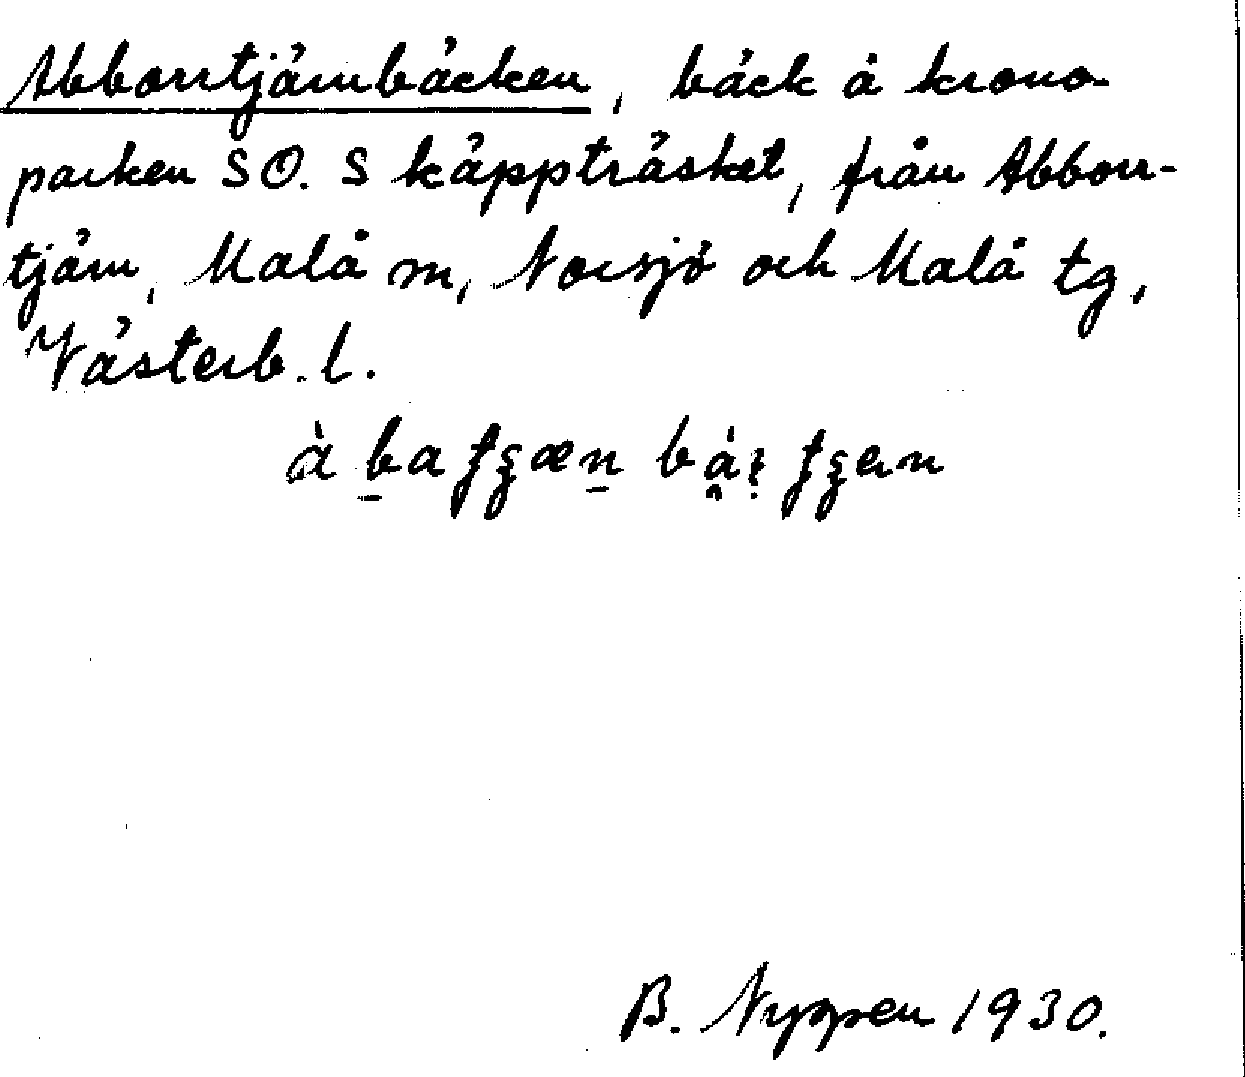 Abborrtjärnbäcken, bäck å krono-
parken SO. Skäppträsket, från Abborr-
tjärn, Malå sn, Norsjö och Malå tg,
Västerb. l.
B. Nyppen 1930.